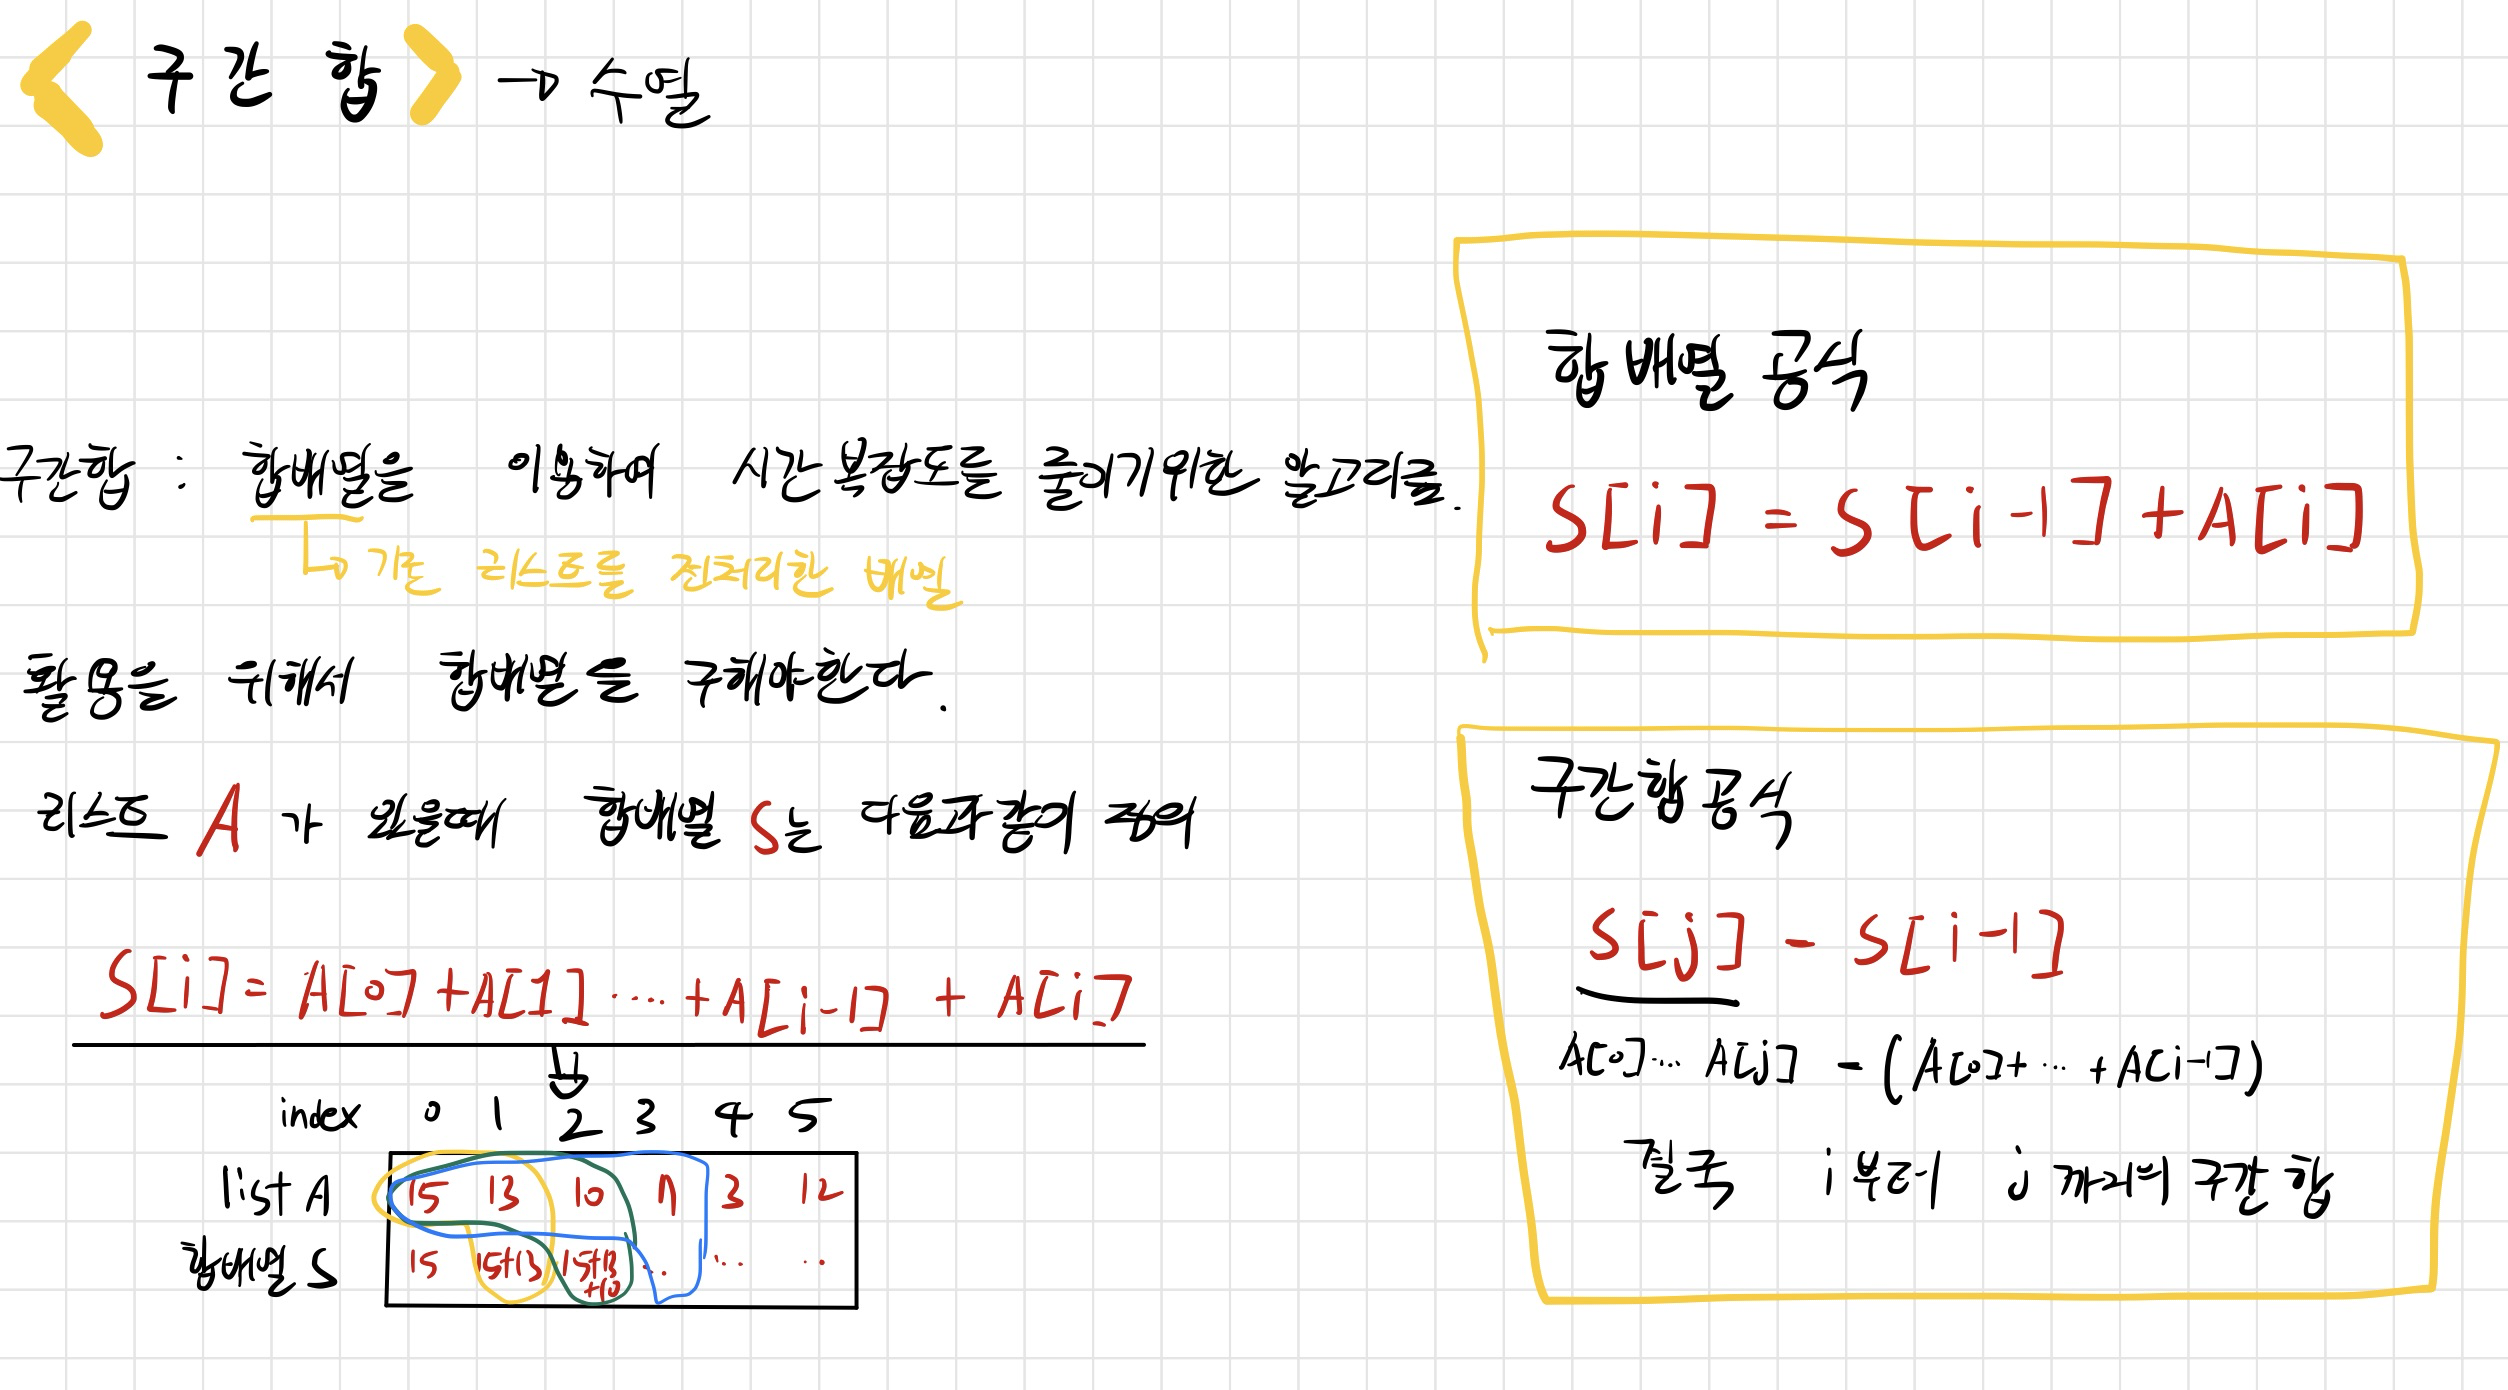 <구간 합> → 수열
구간합 : 합배열을 이용하여 시간 복잡도를 줄이기위한 알고리즘.
기존 리스트를 전처리한 배열
활용을 위해서 합배열을 구해야한다.
리스트 A가 있을때 합배열 S는 다음과 같이 정의
S[i] = A[0] + A[1] ... + A[i-1] + A[i]
index 0 1 2 3 4 5
list A 15 13 10 7 3 12
합배열 S 15 15+13 15+13+10 ... ... ..
합 배열 공식
S[i] = S[i-1] + A[i]
구간 합 공식
S[j] - S[i-1]
A[0]... A[j] - (A[0]+ ... +A[i-1])
결국 i부터 j까지의 구간 합